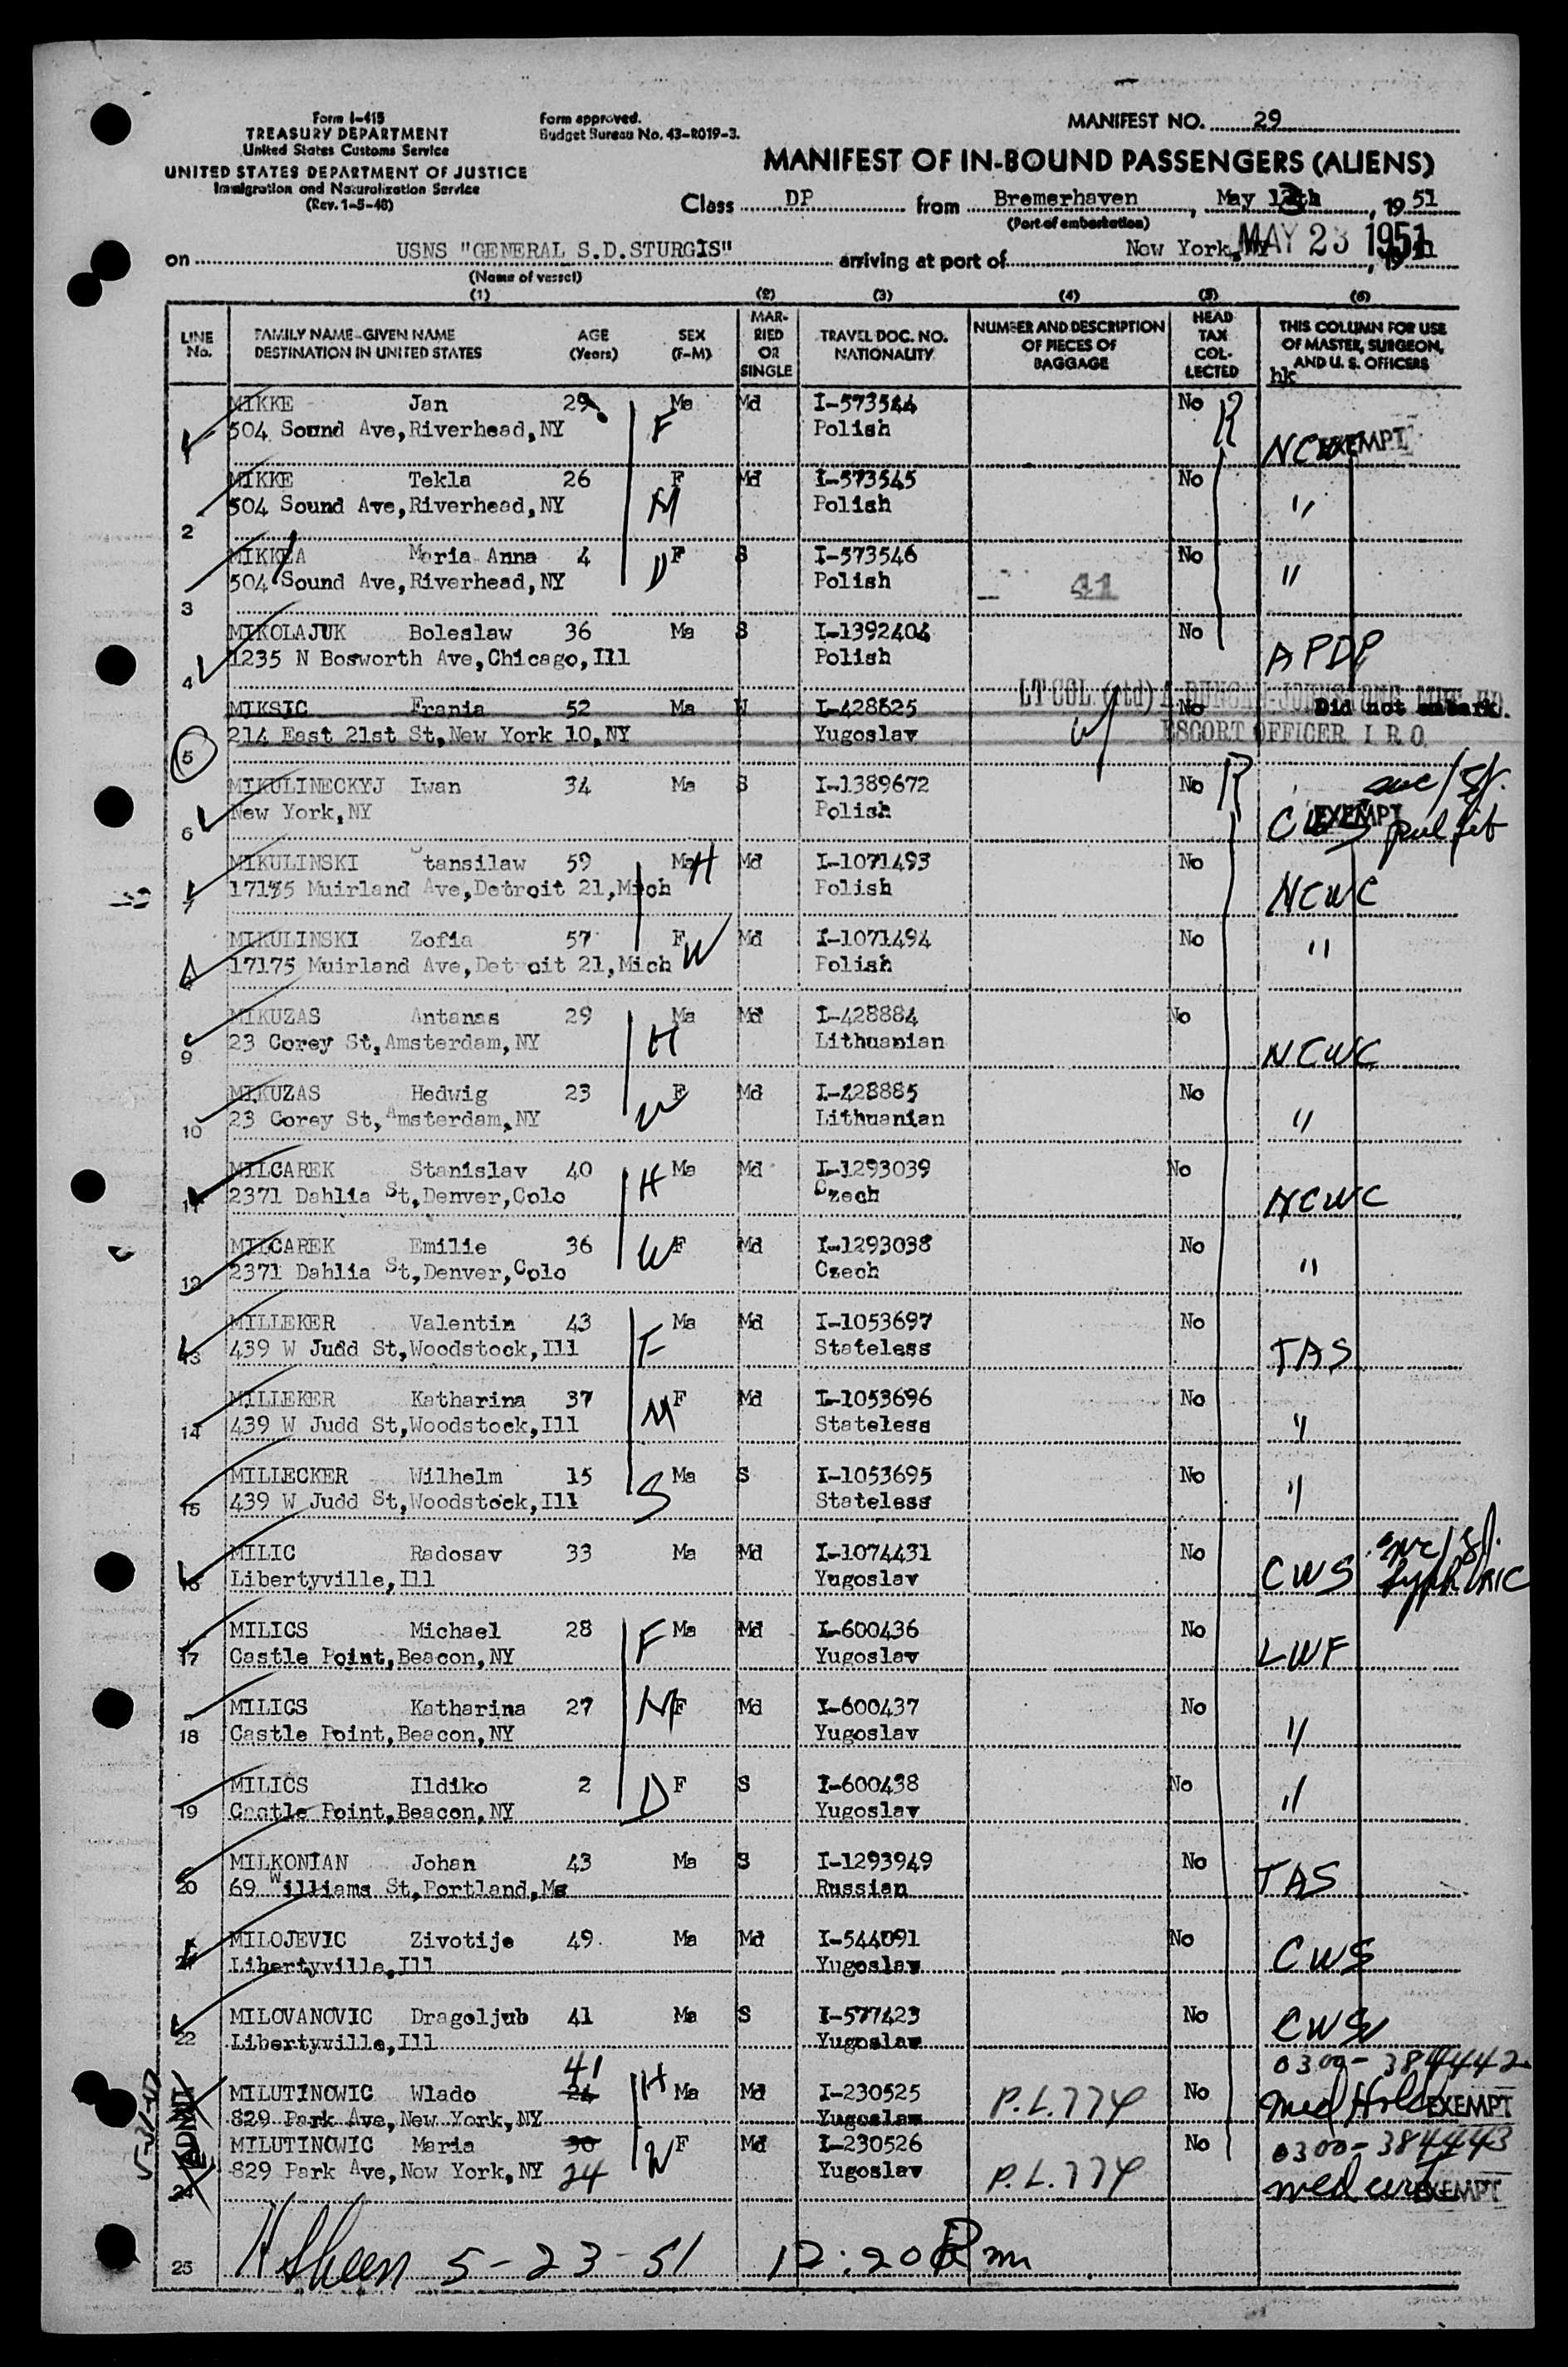 Form I-415
TREASURY DEPARTMENT
United States Customs Service
UNITED STATES DEPARTMENT OF JUSTICE
Immigration and Naturalization Service
(Rev. 1-5-48)
Form approved.
Budget Bureau No. 43-R019-3.
MANIFEST NO. 29
MANIFEST OF IN-BOUND PASSENGERS (ALIENS)
Class DP from Bremerhaven, May 13th, 19 51
(Port of embarkation)
on USNS "GENERAL S.D.STURGIS" arriving at port of New York, NY MAY 23 1951
(Name of vessel)
(1) (2) (3) (4) (5) (6)
LINE No. FAMILY NAME-GIVEN NAME DESTINATION IN UNITED STATES AGE (Years) SEX (F-M) MARRIED OR SINGLE TRAVEL DOC. NO. NATIONALITY NUMBER AND DESCRIPTION OF PIECES OF BAGGAGE HEAD TAX COLLECTED THIS COLUMN FOR USE OF MASTER, SURGEON, AND U. S. OFFICERS
hk
MIKKE Jan 29 F Ma Md I-573544 No R
504 Sound Ave,Riverhead,NY Polish NCWC EXEMPT
MIKKE Tekla 26 M F Md I-573545 No
2 504 Sound Ave,Riverhead,NY Polish "
MIKKEA Maria Anna 4 D F S I-573546 No
3 504 Sound Ave,Riverhead,NY Polish 41 "
MIKOLAJUK Boleslaw 36 Ma S I-1392404 No
4 1235 N Bosworth Ave,Chicago,Ill Polish APDP
MIKSIC Frania 52 Ma W I-428625 No Did not embark.
LT COL (rtd)
5 214 East 21st St,New York 10,NY Yugoslav ESCORT OFFICER I R O
MIKULINECKYJ Iwan 34 Ma S I-1389672 No R
6 New York,NY Polish CWS EXEMPT
MIKULINSKI Stansilaw 59 Ma H Md I-1071493 No
7 17185 Muirland Ave,Detroit 21,Mich Polish NCWC
MIKULINSKI Zofia 57 F W Md I-1071494 No
17175 Muirland Ave,Detroit 21,Mich Polish "
MIKUZAS Antanas 29 H Ma Md I-428884 No
9 23 Corey St,Amsterdam,NY Lithuanian NCWC
MIKUZAS Hedwig 23 W F Md I-428885 No
10 23 Corey St,Amsterdam,NY Lithuanian "
MILCAREK Stanislav 40 H Ma Md I-1293039 No
11 2371 Dahlia St,Denver,Colo Czech NCWC
MILCAREK Emilie 36 W F Md I-1293038 No
12 2371 Dahlia St,Denver,Colo Czech "
MILLEKER Valentin 43 F Ma Md I-1053697 No
13 439 W Judd St,Woodstock,Ill Stateless TAS
MILLEKER Katharina 37 M F Md I-1053696 No
14 439 W Judd St,Woodstock,Ill Stateless "
MILLECKER Wilhelm 15 S Ma S I-1053695 No
15 439 W Judd St,Woodstock,Ill Stateless "
MILIC Radosav 33 Ma Md I-1074431 No
16 Libertyville,Ill Yugoslav CWS
MILICS Michael 28 F Ma Md I-600436 No
17 Castle Point,Beacon,NY Yugoslav LWF
MILICS Katharina 27 M F Md I-600437 No
18 Castle Point,Beacon,NY Yugoslav "
MILICS Ildiko 2 D F S I-600438 No
19 Castle Point,Beacon,NY Yugoslav "
MILKONIAN Johan 43 Ma S I-1293949 No
20 69 Williams St,Portland,Me Russian TAS
MILOJEVIC Zivotije 49 Ma Md I-544091 No
21 Libertyville,Ill Yugoslav CWS
MILOVANOVIC Dragoljub 41 Ma S I-577423 No
22 Libertyville,Ill Yugoslav CWS
41 0300-384442
MILUTINOWIC Wlado 24 H Ma Md I-230525 P.L.774 No Med Hold EXEMPT
829 Park Ave,New York,NY Yugoslav
MILUTINOWIC Maria 30 W F Md I-230526 No 0300-384443
24 829 Park Ave,New York,NY 24 Yugoslav P.L.774 med cert EXEMPT
25 H Sheen 5-23-51 12:20 Pm